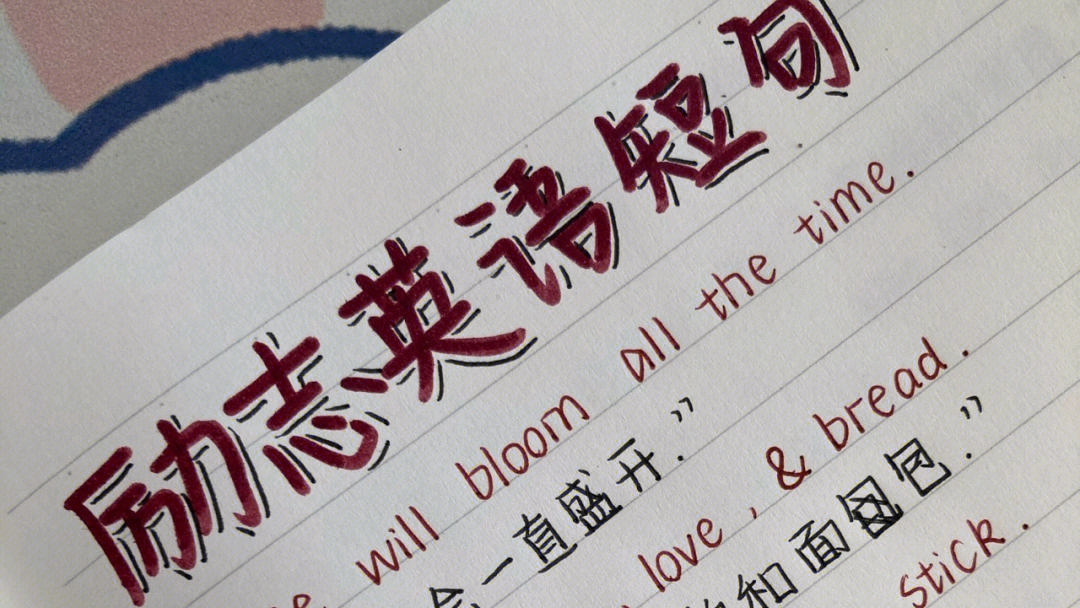 励志英语短句
will bloom all the time.
会一直盛开."
love, & bread.
和面包."
stick.